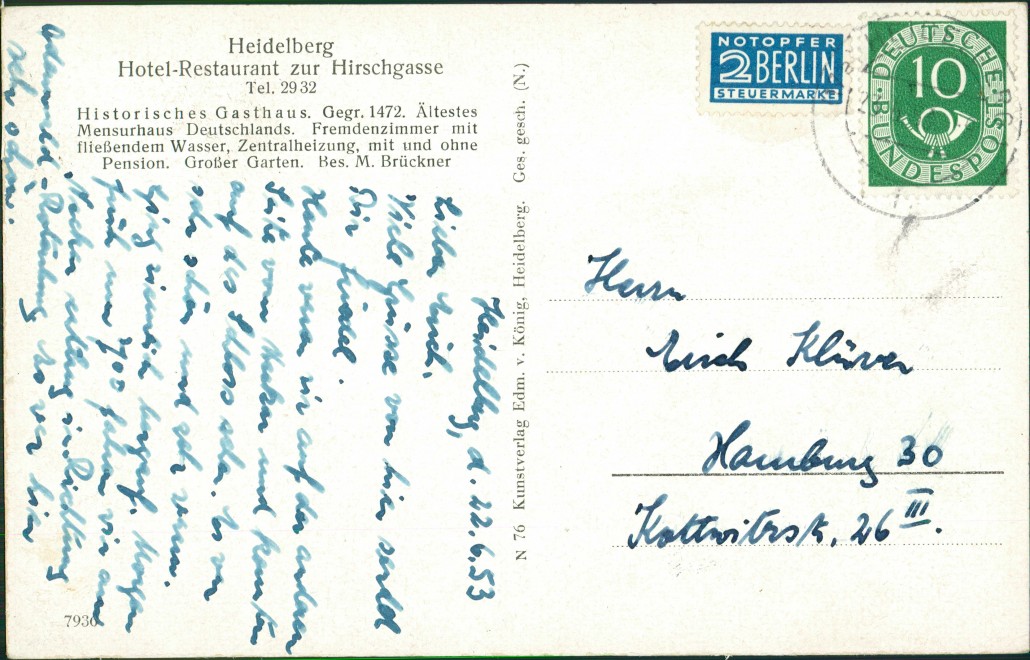 Heidelberg
Hotel-Restaurant zur Hirschgasse
Tel. 29 32
Historisches Gasthaus. Gegr. 1472. Ältestes
Mensurhaus Deutschlands. Fremdenzimmer mit
fließendem Wasser, Zentralheizung, mit und ohne
Pension. Großer Garten. Bes. M. Brückner
Heidelberg, d. 22.6.53
Lieber Erich,
Viele Grüsse von hier sendet
Dir
Heute waren wir auf der anderen
Seite vom Neckar und konnten
auf das Schloss sehn. Es war
sehr schön und sehr warm.
Es ging ziemlich bergauf. Morgen
früh um 7.00 fahren wir am
Neckar entlang in Richtung
Odenwald - Rotenburg. Es war hier
sehr schön.
7936
N 76 Kunstverlag Edm. v. König, Heidelberg. Ges. gesch. (N.)
NOTOPFER
2 BERLIN
STEUERMARKE
DEUTSCHE BUNDESPOST
10
Herrn
Erich Klüver
Hamburg 30
Kottwitzstr. 26 III.